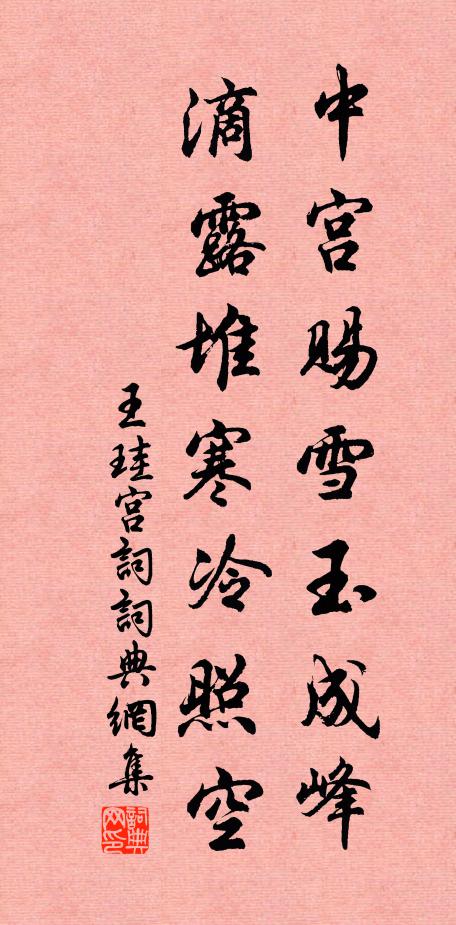 中宫赐雪玉成峰
滴露堆寒冷照空
王珪宫詞詞典網集
詞典网印